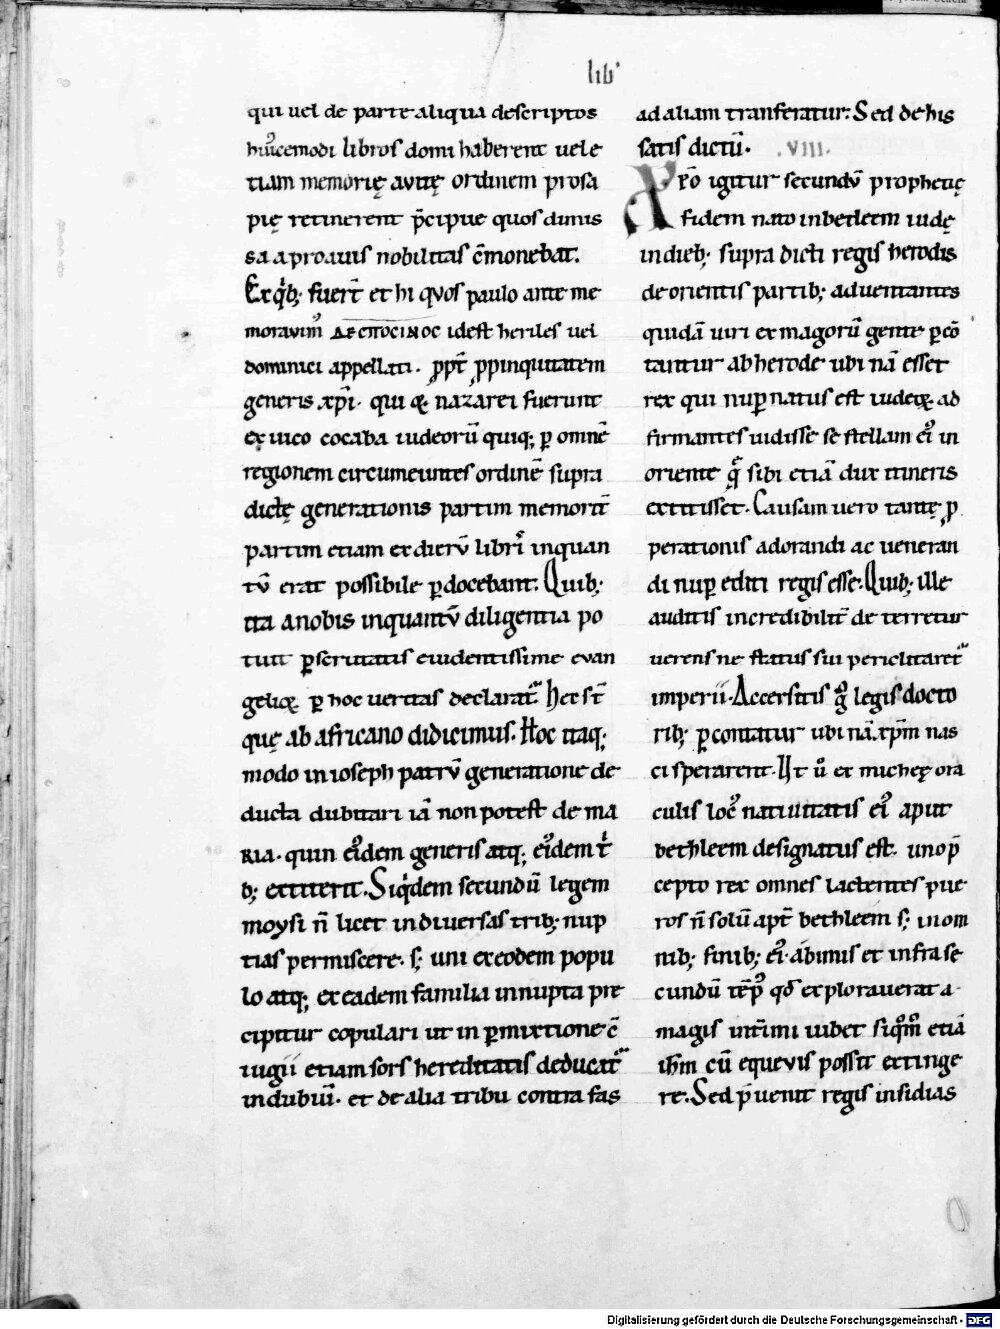 lib'
qui uel de parte aliqua descriptos
hui᷒cemodi libros domi haberent uel e
tiam memorię auitę ordinem prosa
pię retinerent p̄cipue quos dimis
sa aproauis nobilitas c̄monebat.
Exqͥb; fuer̄t et hi quos paulo ante me
morauim᷒ ΔΕCΠOCINOC idest heriles uel
dominici appellati. ꝓpt̄ ꝓpinquitatem
generis xp̄i. qui & nazarei fuerunt
ex uico cocaba iudeorū quiq; ꝑ omnē
regionem circumeuntes ordinē supra
dictę generationis partim memorit̄
partim etiam ex dierū libri inquan
tū erat possibile ꝑdocebant. Quib;
ita anobis inquantū diligentia po
tuit ꝑscrutatis euidentissime euan
gelicę ꝑ hoc ueritas declarat᷒. Hec st̄
quę ab africano didicimus. Hoc itaq;
modo in ioseph patrū generatione de
ducta dubitari iā non potest de ma
RIA. quin ei᷒dem generis atq; ei᷒dem tͥ
b; extiterit. Siqͥdem secundū legem
moysi n̄ licet indiuersas trib; nup
tias permiscere. s; uni exeodem popu
lo atq; ex eadem familia innupta pre
cipitur copulari ut in ꝑmixtione c̄
iugii etiam sors hereditatis deducat᷒
indubiu᷒. et de alia tribu contra fas
ad aliam tranferatur. Sed de his
satis dictū. .VIII.
Xp̄o igitur secundū prophetię
fidem nato in betleem iudę
in dieb; supra dicti regis herodis
de orientis partib; aduentantes
quidā uiri ex magorū gente ꝑcō
tantur ab herode ubi nā esset
rex qui nuꝑ natus est iudeoꝝ ad
firmantes uidisse se stellam ei᷒ in
oriente q̄ sibi etiā dux itineris
extitisset. Causam uero tantę ꝓ
perationis adorandi ac ueneran
di nuꝑ editi regis esse. Quib; ille
auditis incredibilit̄ de terretur
uerens ne status sui periclitaret᷒
imperii. Accersitis gͦ legis docto
rib; ꝑcontatur ubi nā xp̄m nas
ci sperarent. Ut ū ex michęę ora
culis loc᷒ natiuitatis ei᷒ aput
bethleem designatus est. uno p̄
cepto rex omnes lactentes pue
ros n̄ solū apt̄ bethleem s; in om
nib; finib; ei᷒. abimis et infra se
cundū tēp᷒ qd̄ explorauerat a
magis int̄imi iubet siqͦm etiā
ihm̄ cū equeuis possit extinge
re. Sed p̄uenit regis insidias
Digitalisierung gefördert durch die Deutsche Forschungsgemeinschaft - DFG